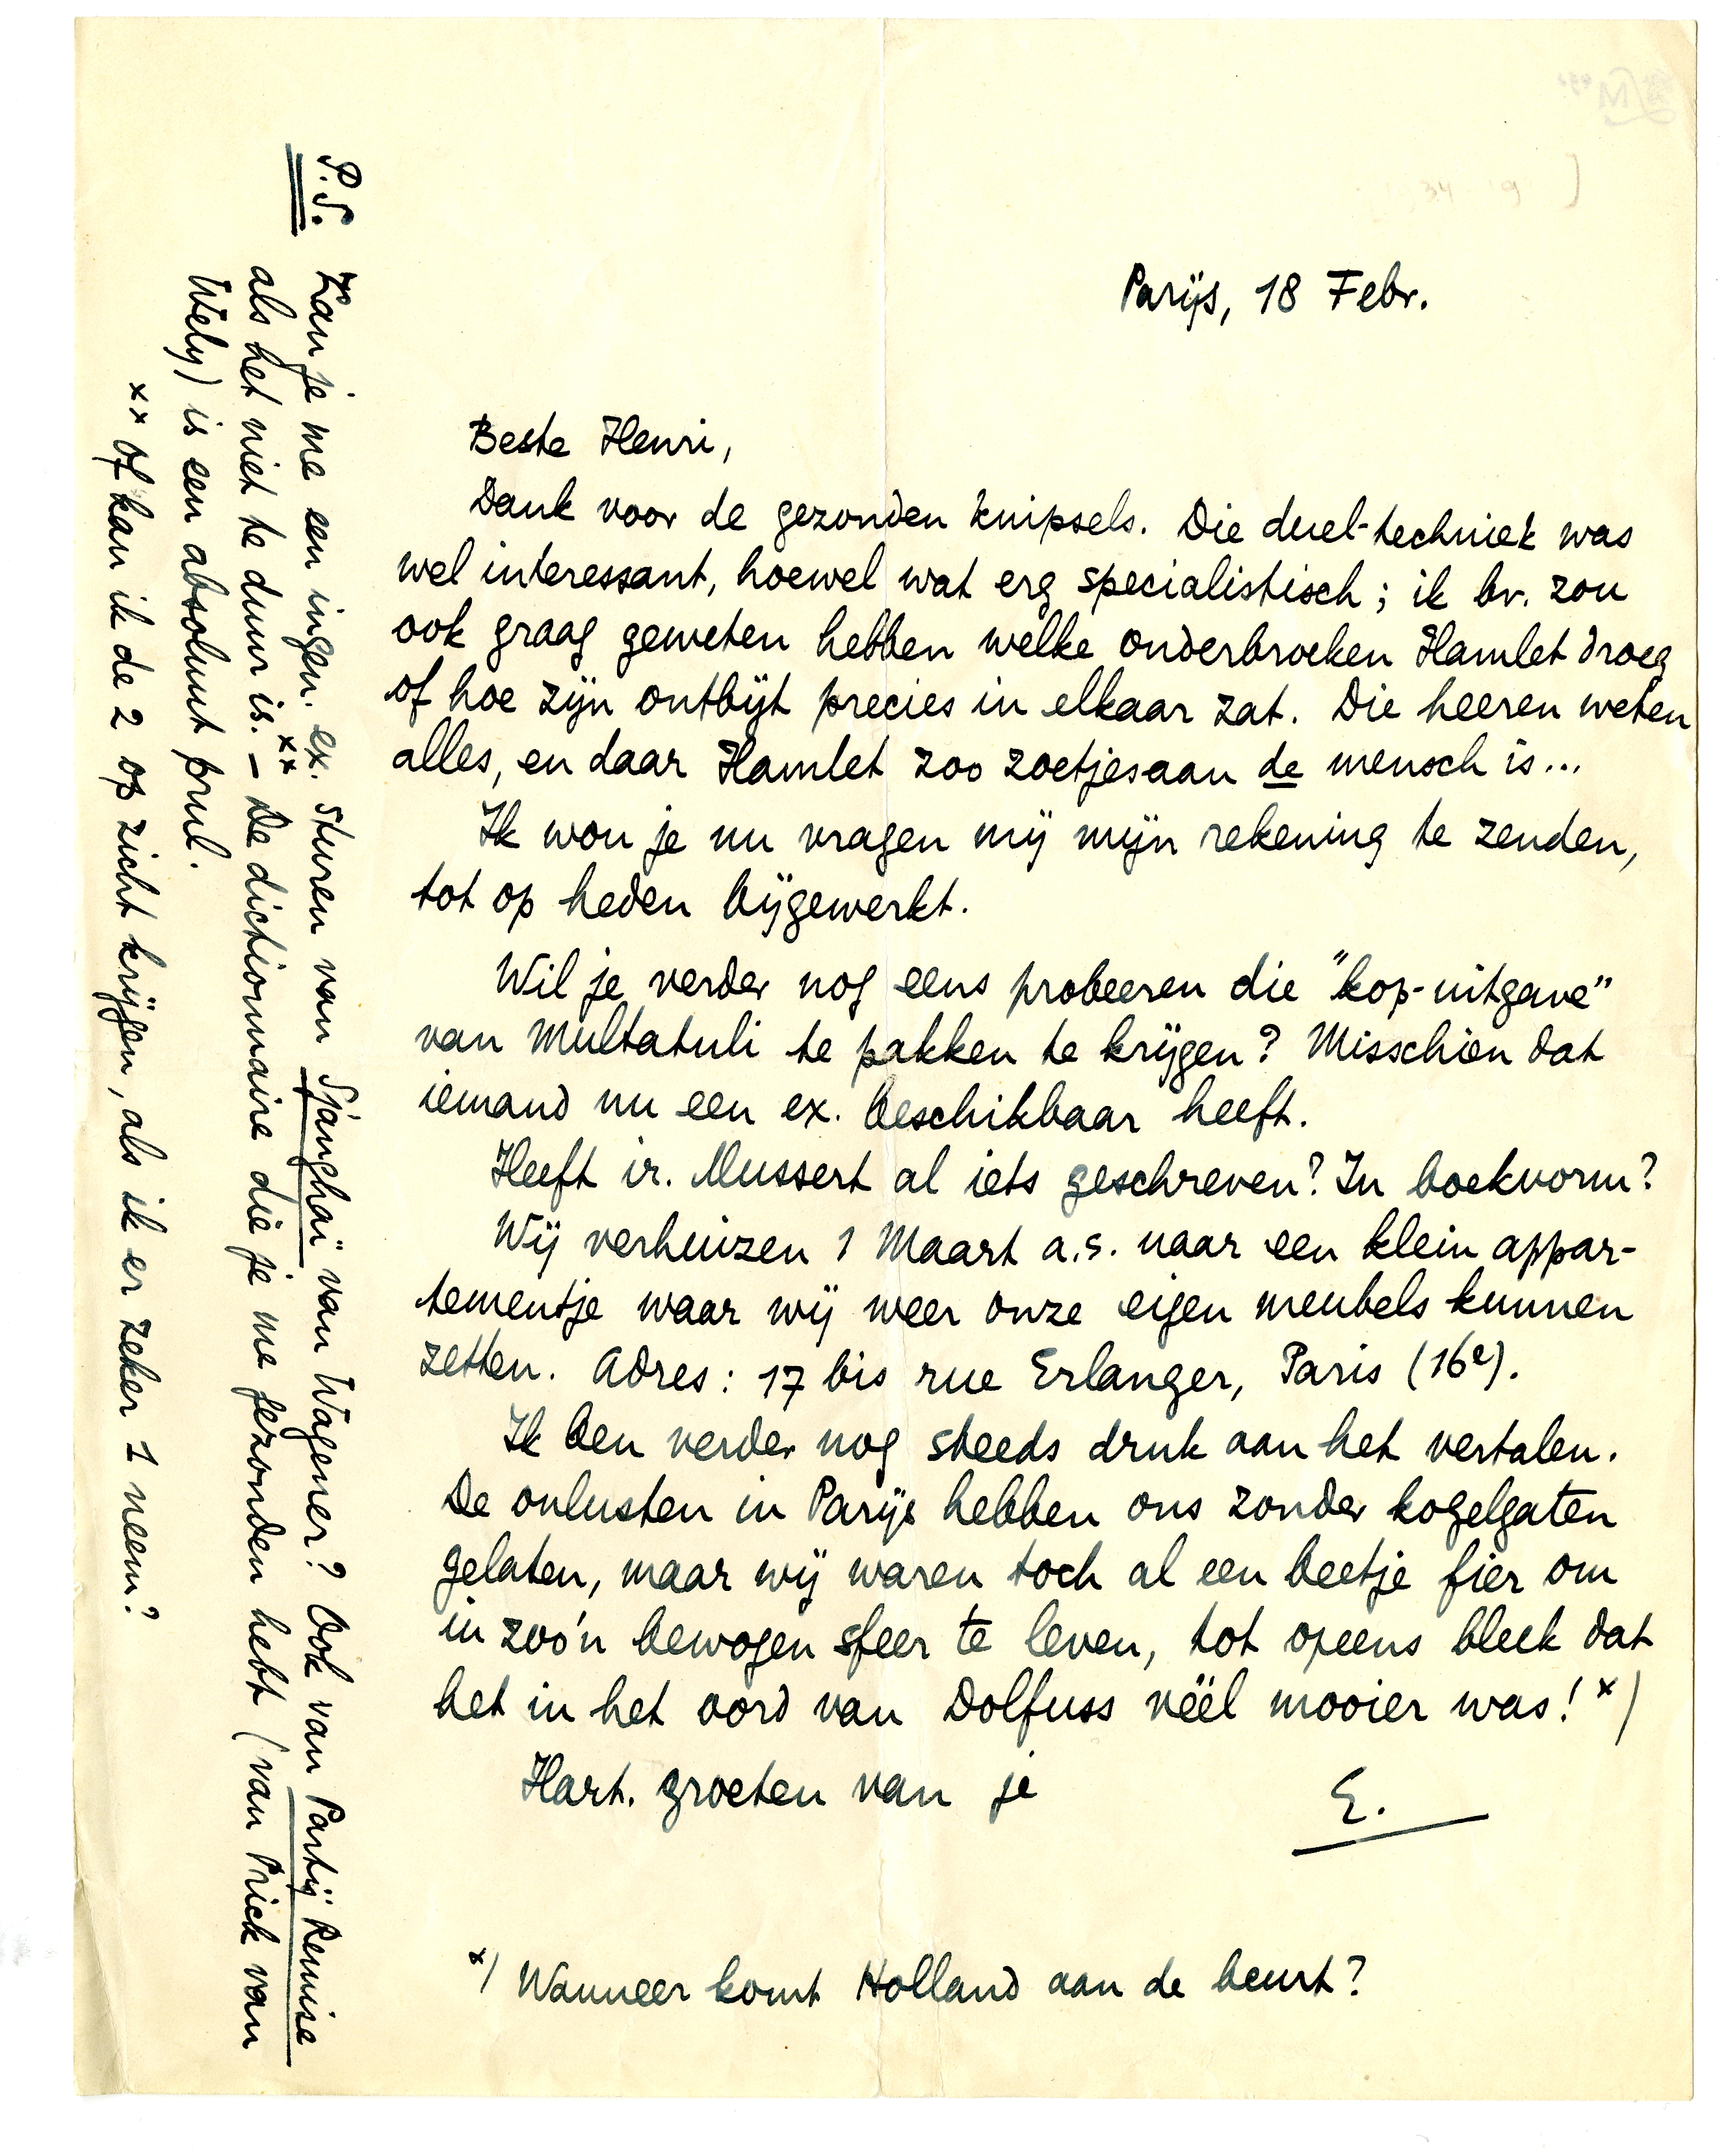 Parijs, 18 Febr.
Beste Henri,
Dank voor de gezonden knipsels. Die duel-techniek was
wel interessant, hoewel wat erg specialistisch; ik bv. zou
ook graag geweten hebben welke onderbroeken Hamlet droeg
of hoe zijn ontbijt precies in elkaar zat. Die heeren weten
alles, en daar Hamlet zoo zoetjesaan de mensch is...
Ik wou je nu vragen mij mijn rekening te zenden,
tot op heden bijgewerkt.
Wil je verder nog eens probeeren die "kop-uitgave"
van Multatuli te pakken te krijgen? Misschien dat
iemand nu een ex. beschikbaar heeft.
Heeft ir. Mussert al iets geschreven? In boekvorm?
Wij verhuizen 1 Maart a.s. naar een klein appar-
tementje waar wij weer onze eigen meubels kunnen
zetten. Adres: 17 bis rue Erlanger, Paris (16e).
Ik ben verder nog steeds druk aan het vertalen.
De onlusten in Parijs hebben ons zonder kogelgaten
gelaten, maar wij waren toch al een beetje fier om
in zoo'n bewogen sfeer te leven, tot opeens bleek dat
het in het oord van Dolfuss véél mooier was! x)
Hart. groeten van je
E.
x) Wanneer komt Holland aan de beurt?
P.S. Kan je me een ingen. ex. sturen van Sjanghaï van Wagener? Ook van Partij Remise
als het niet te duur is. xx – De dictionnaire die je me gezonden hebt (van Prick van
Wely) is een absoluut prul.
xx Of kan ik de 2 op zicht krijgen, als ik er zeker 1 neem?